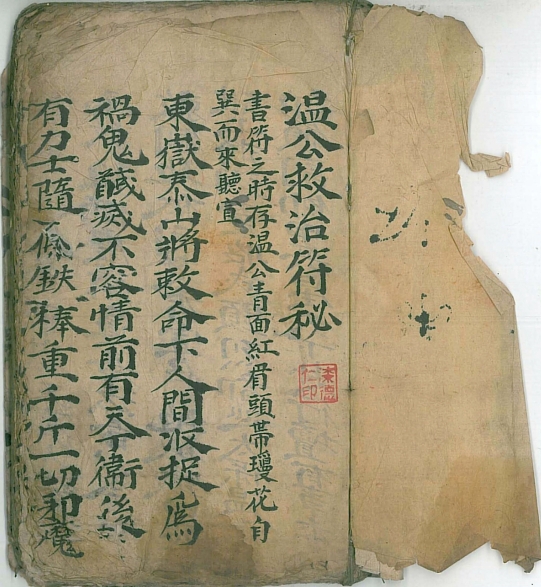 温公救治符秘
書符之時存温公青面紅眉頭帶瓊花自
巽而來聽宣
東嶽泰山將敕命下人間收捉爲
禍鬼馘滅不容情前有天丁衞後
有力士隨一條鉄棒重千斤一切邪魔
德仁印